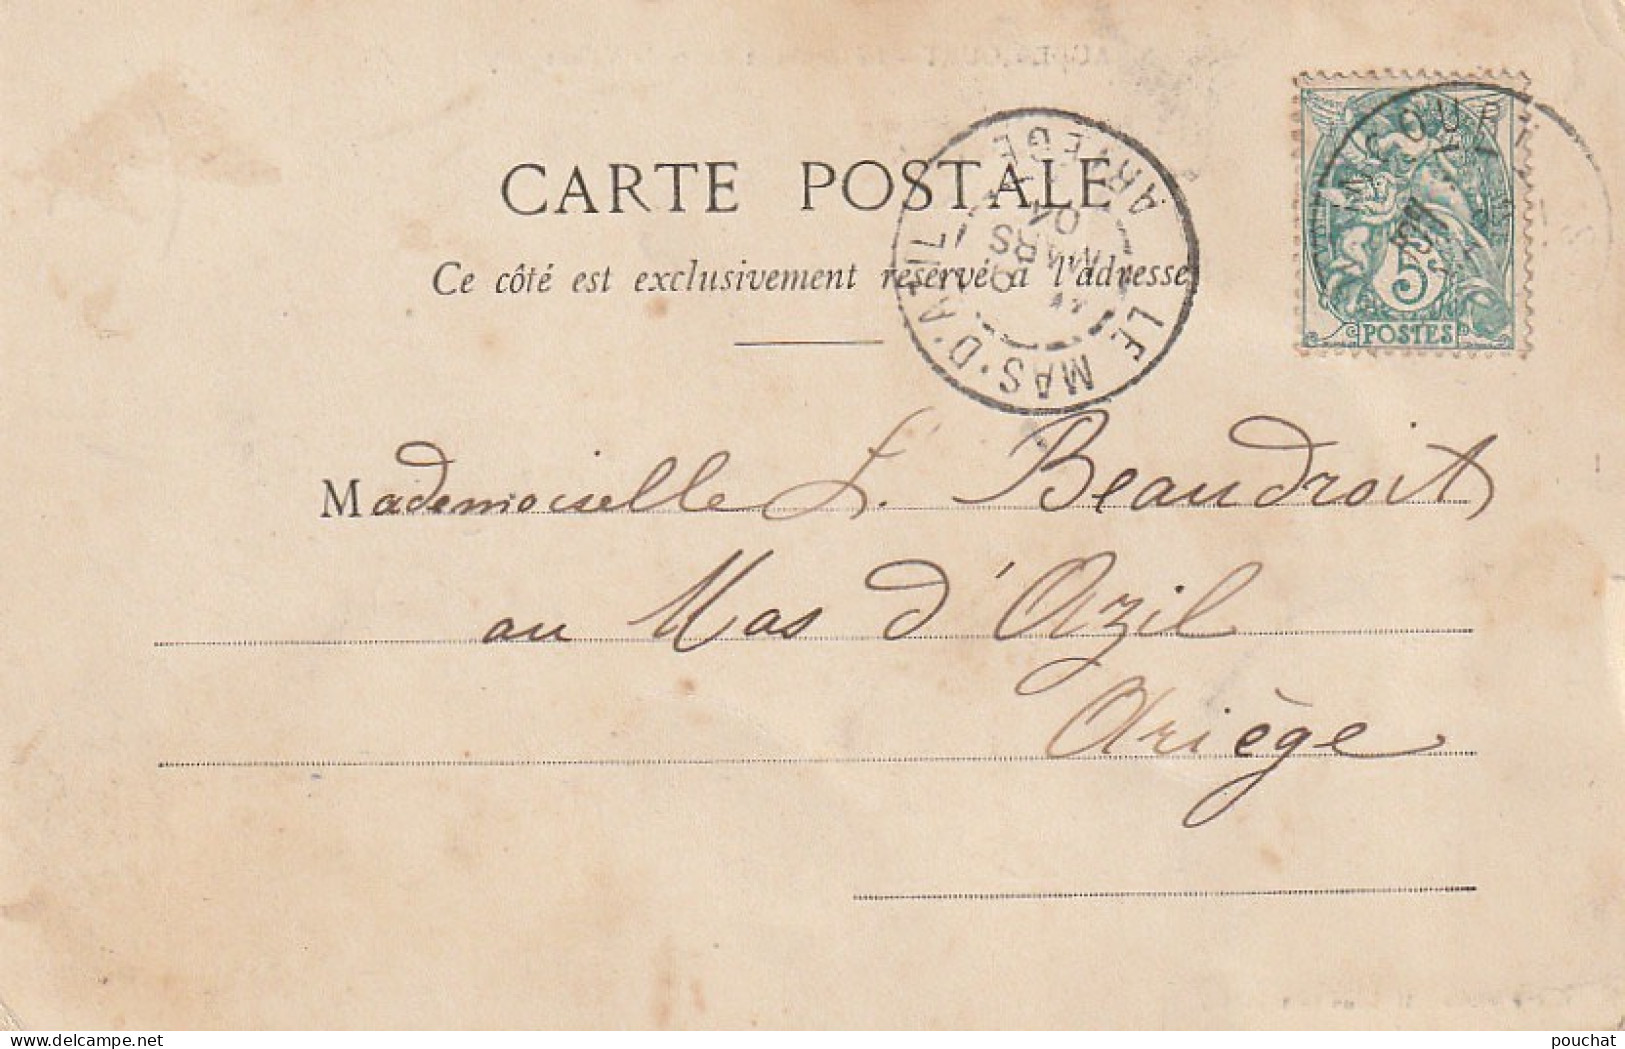 CARTE POSTALE
Ce côté est exclusivement réservé à l'adresse
LE MAS-D'AZIL
ARIEGE
MARS
04
5
POSTES
Mademoiselle L. Beaudroit
au Mas d'Azil
Ariège
pouchat
www.delcampe.net